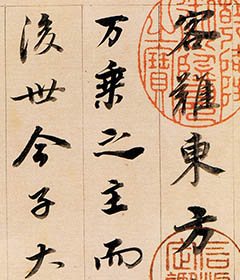 客難東方
万乘之主而
後世今子大